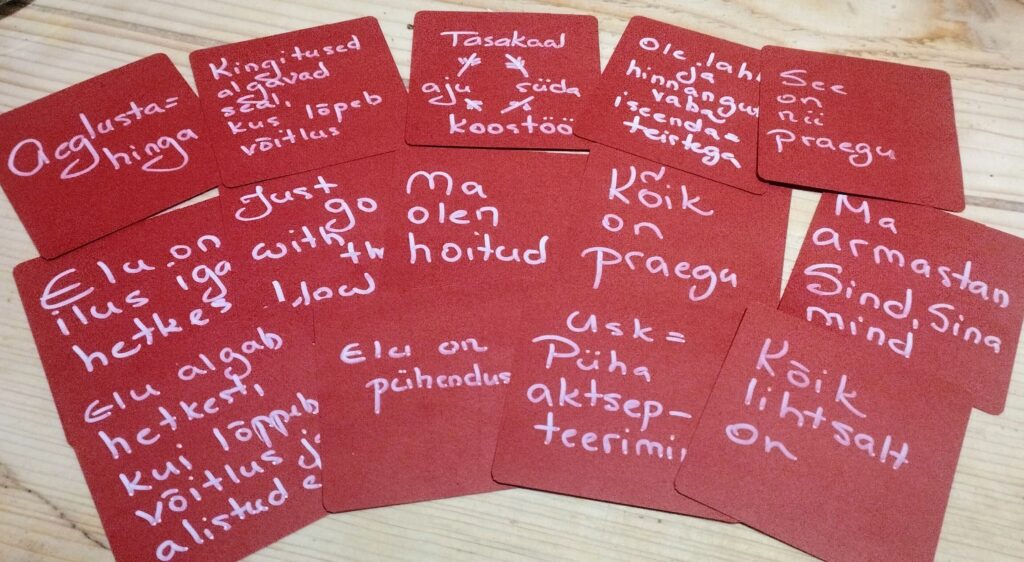 Aeglusta=
hinga
Kingitused
algavad
seal,
kus lõpeb
võitlus
Tasakaal
aju süda
koostöö
Ole lah
ja
hinnangu
vaba
iseenda=
teistega
See
on
nii
praegu
Elu on
ilus iga
hetkes
Just
go
with
th
flow
Ma
olen
hoitud
Kõik
on
praegu
Ma
armastan
Sind, Sina
mind
Elu algab
hetkest,
kui lõppeb
võitlus ja
alistud e
Elu on
pühendus
Usk=
Püha
aktsep-
teerimi
Kõik
lihtsalt
on